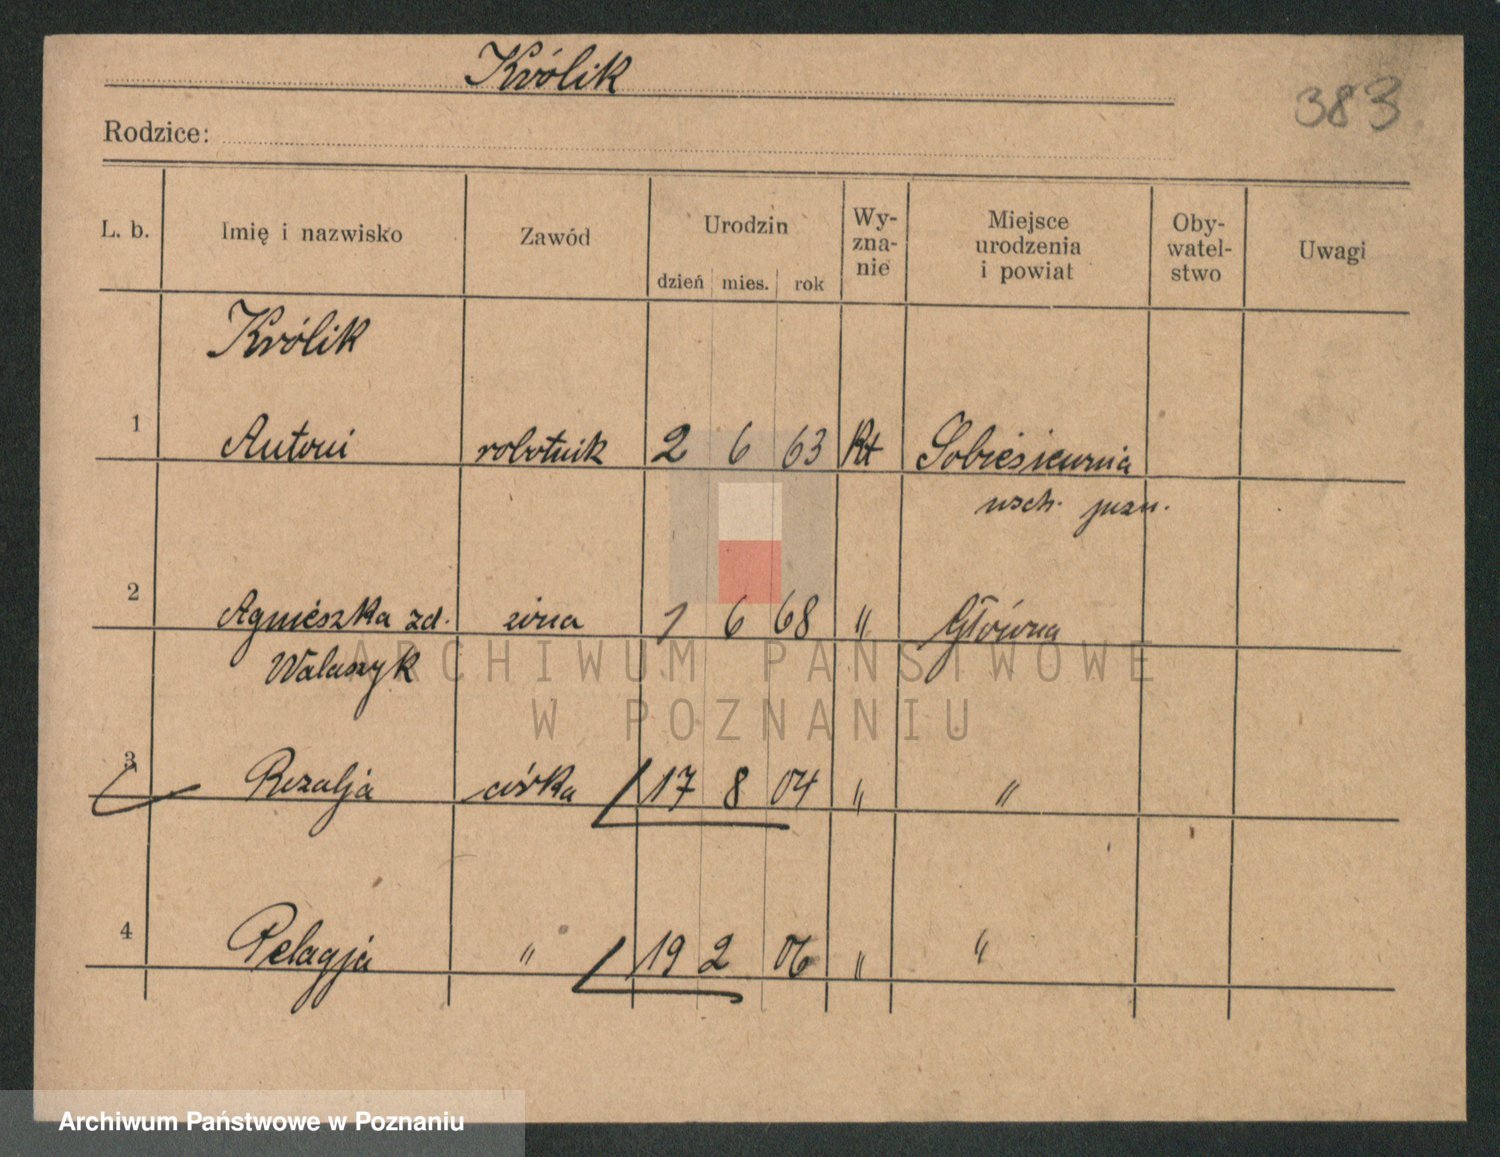 Królik
383
Rodzice:
L. b. Imię i nazwisko Zawód Urodzin Wy- Miejsce Oby- Uwagi
zna- urodzenia watel-
nie i powiat stwo
dzień mies. rok
Królik
1 Antoni robotnik 2 6 63 Rt Sobiesiernia
wsch. pozn.
2 Agnieszka zd. żona 1 6 68 " Główna
Walaszyk
3 Rozalja córka 17 8 04 " "
4 Pelagja " 19 2 06 " "
ARCHIWUM PAŃSTWOWE
W POZNANIU
Archiwum Państwowe w Poznaniu